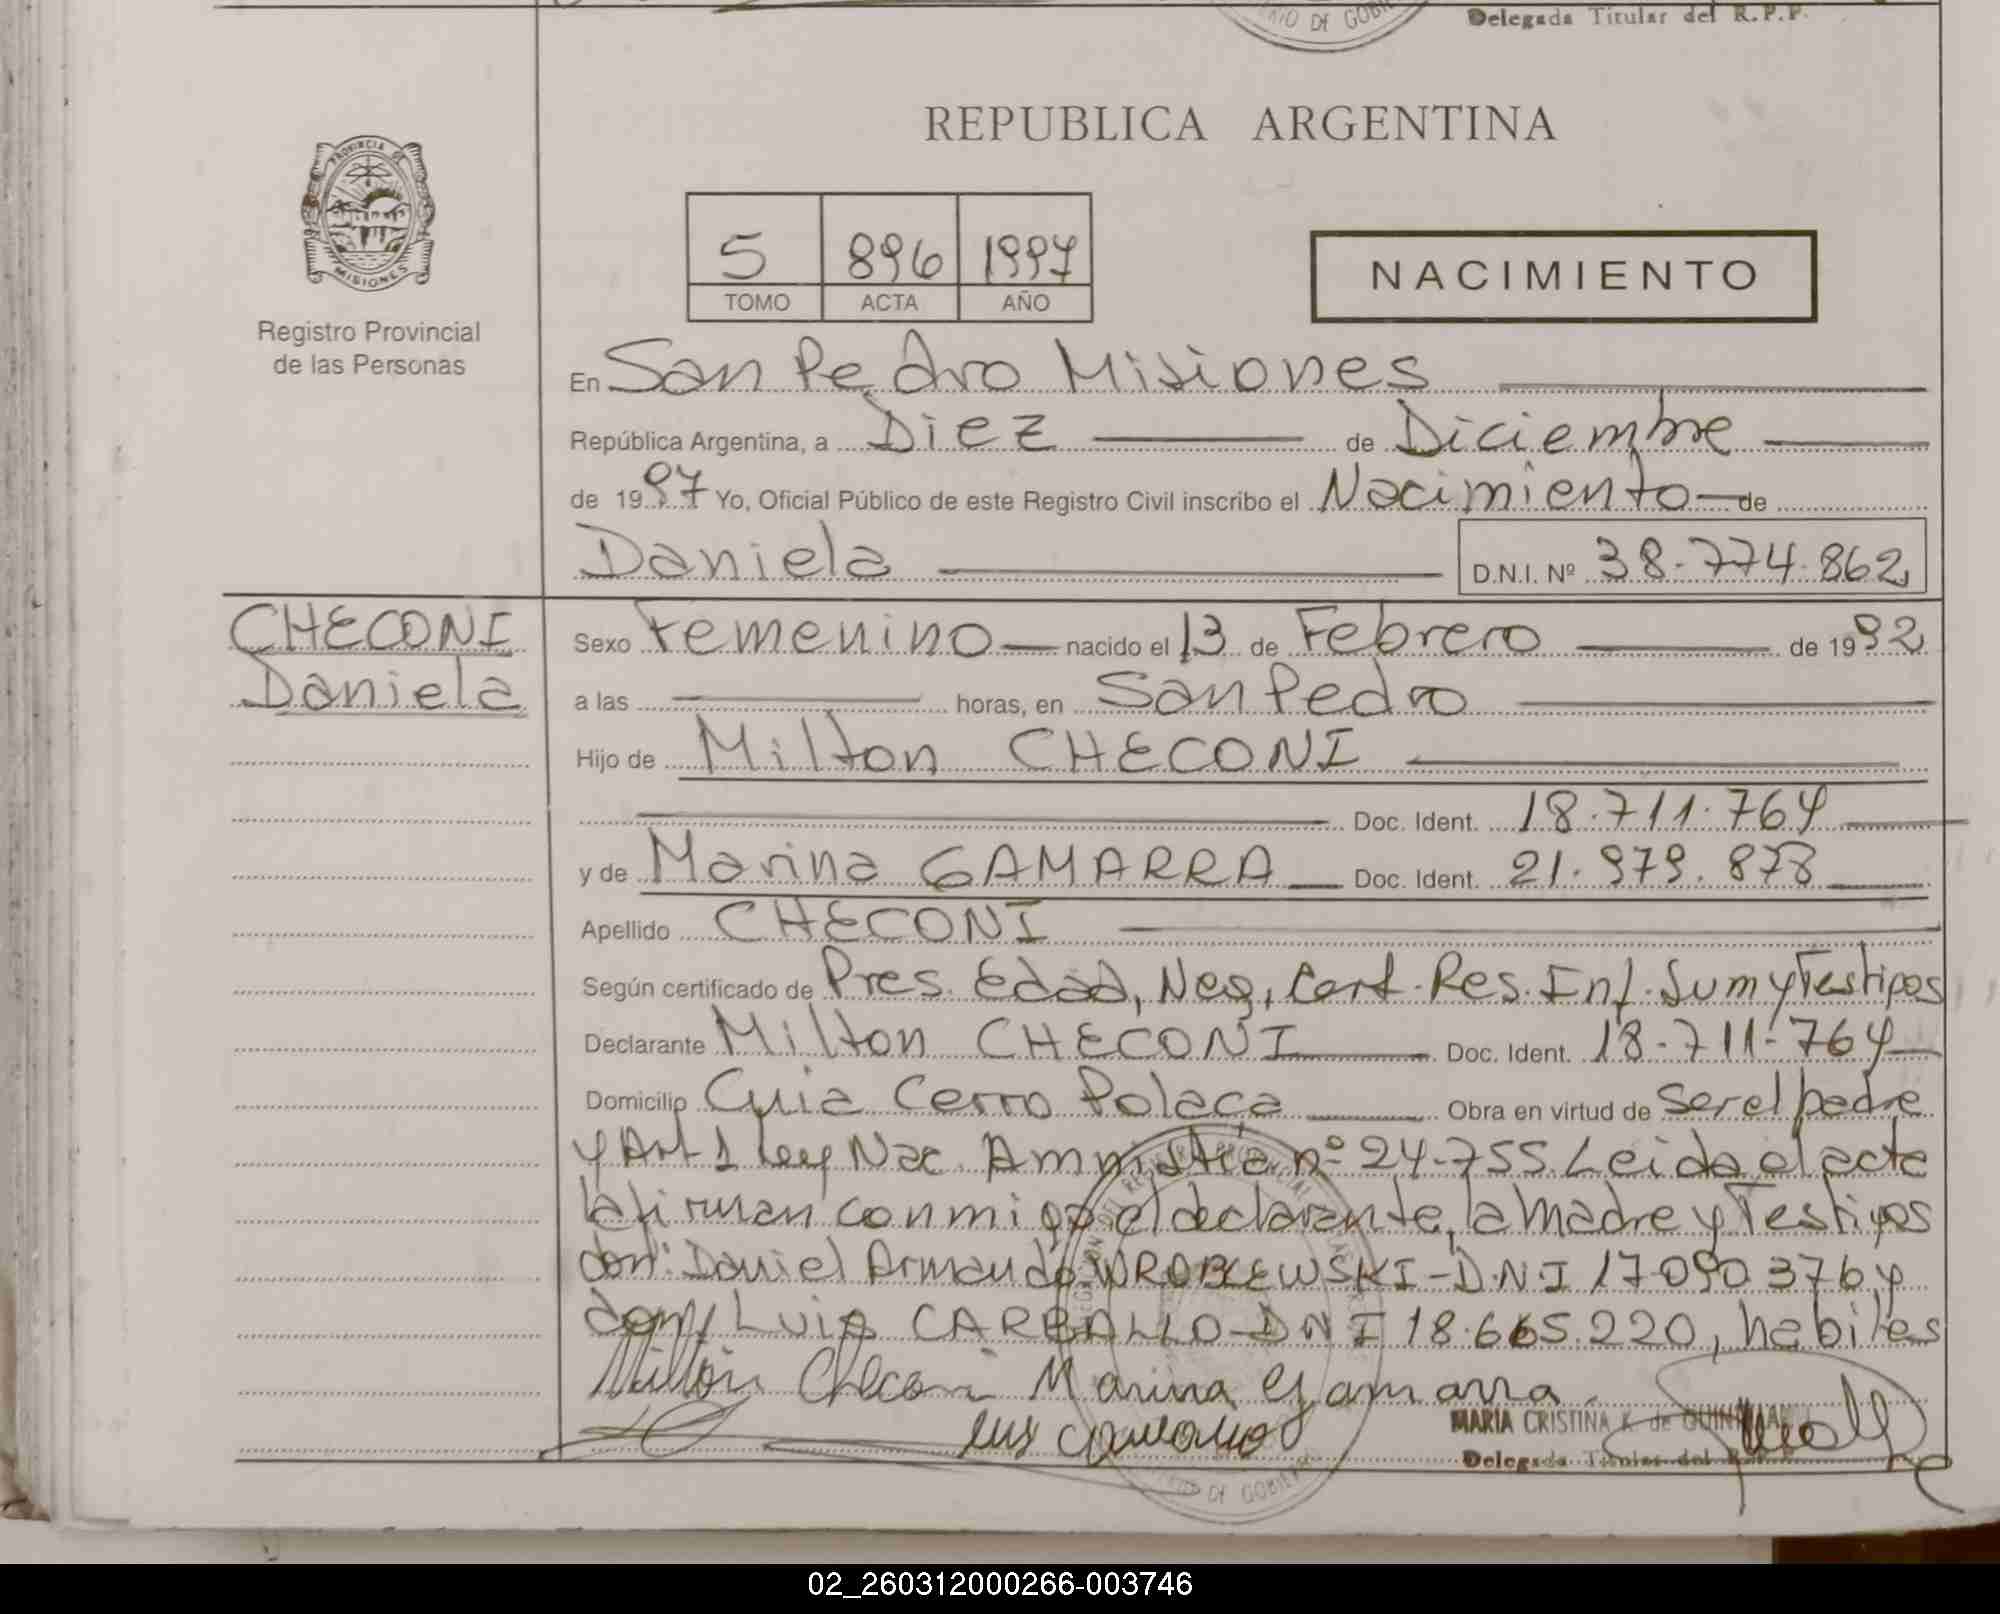 Delegada Titular del R.P.P.
REPUBLICA ARGENTINA
PROVINCIA DE
MISIONES
Registro Provincial
de las Personas
5 896 1997
TOMO ACTA AÑO
NACIMIENTO
En San Pedro Misiones
República Argentina, a Diez de Diciembre
de 1997 Yo, Oficial Público de este Registro Civil inscribo el Nacimiento de
Daniela D.N.I. Nº 38.774.862
CHECONI
Daniela
Sexo Femenino nacido el 13 de Febrero de 1992
a las horas, en San Pedro
Hijo de Milton CHECONI
Doc. Ident. 18.711.764
y de Marina GAMARRA Doc. Ident. 21.979.878
Apellido CHECONI
Según certificado de Pres. Edad, Neg, Cert. Res. Inf. Sum y Testigos
Declarante Milton CHECONI Doc. Ident. 18.711.764
Domicilio Guia Cerro Polaca Obra en virtud de Ser el padre
y Art 1 ley Nac. Amnistia nº 24.755. Leida el acta
la firman conmigo el declarante, la Madre y Testigos
don: Daniel Armando WROBLEWSKI - D.N.I 17.090.376 y
don Luis CARBALLO - DNI 18.665.220, habiles
Milton Checoni Marina Gamarra
Luis Carvallo
MARIA CRISTINA K. de
Delegada Titular del R.P.P.
DE GOBIERNO
02_260312000266-003746